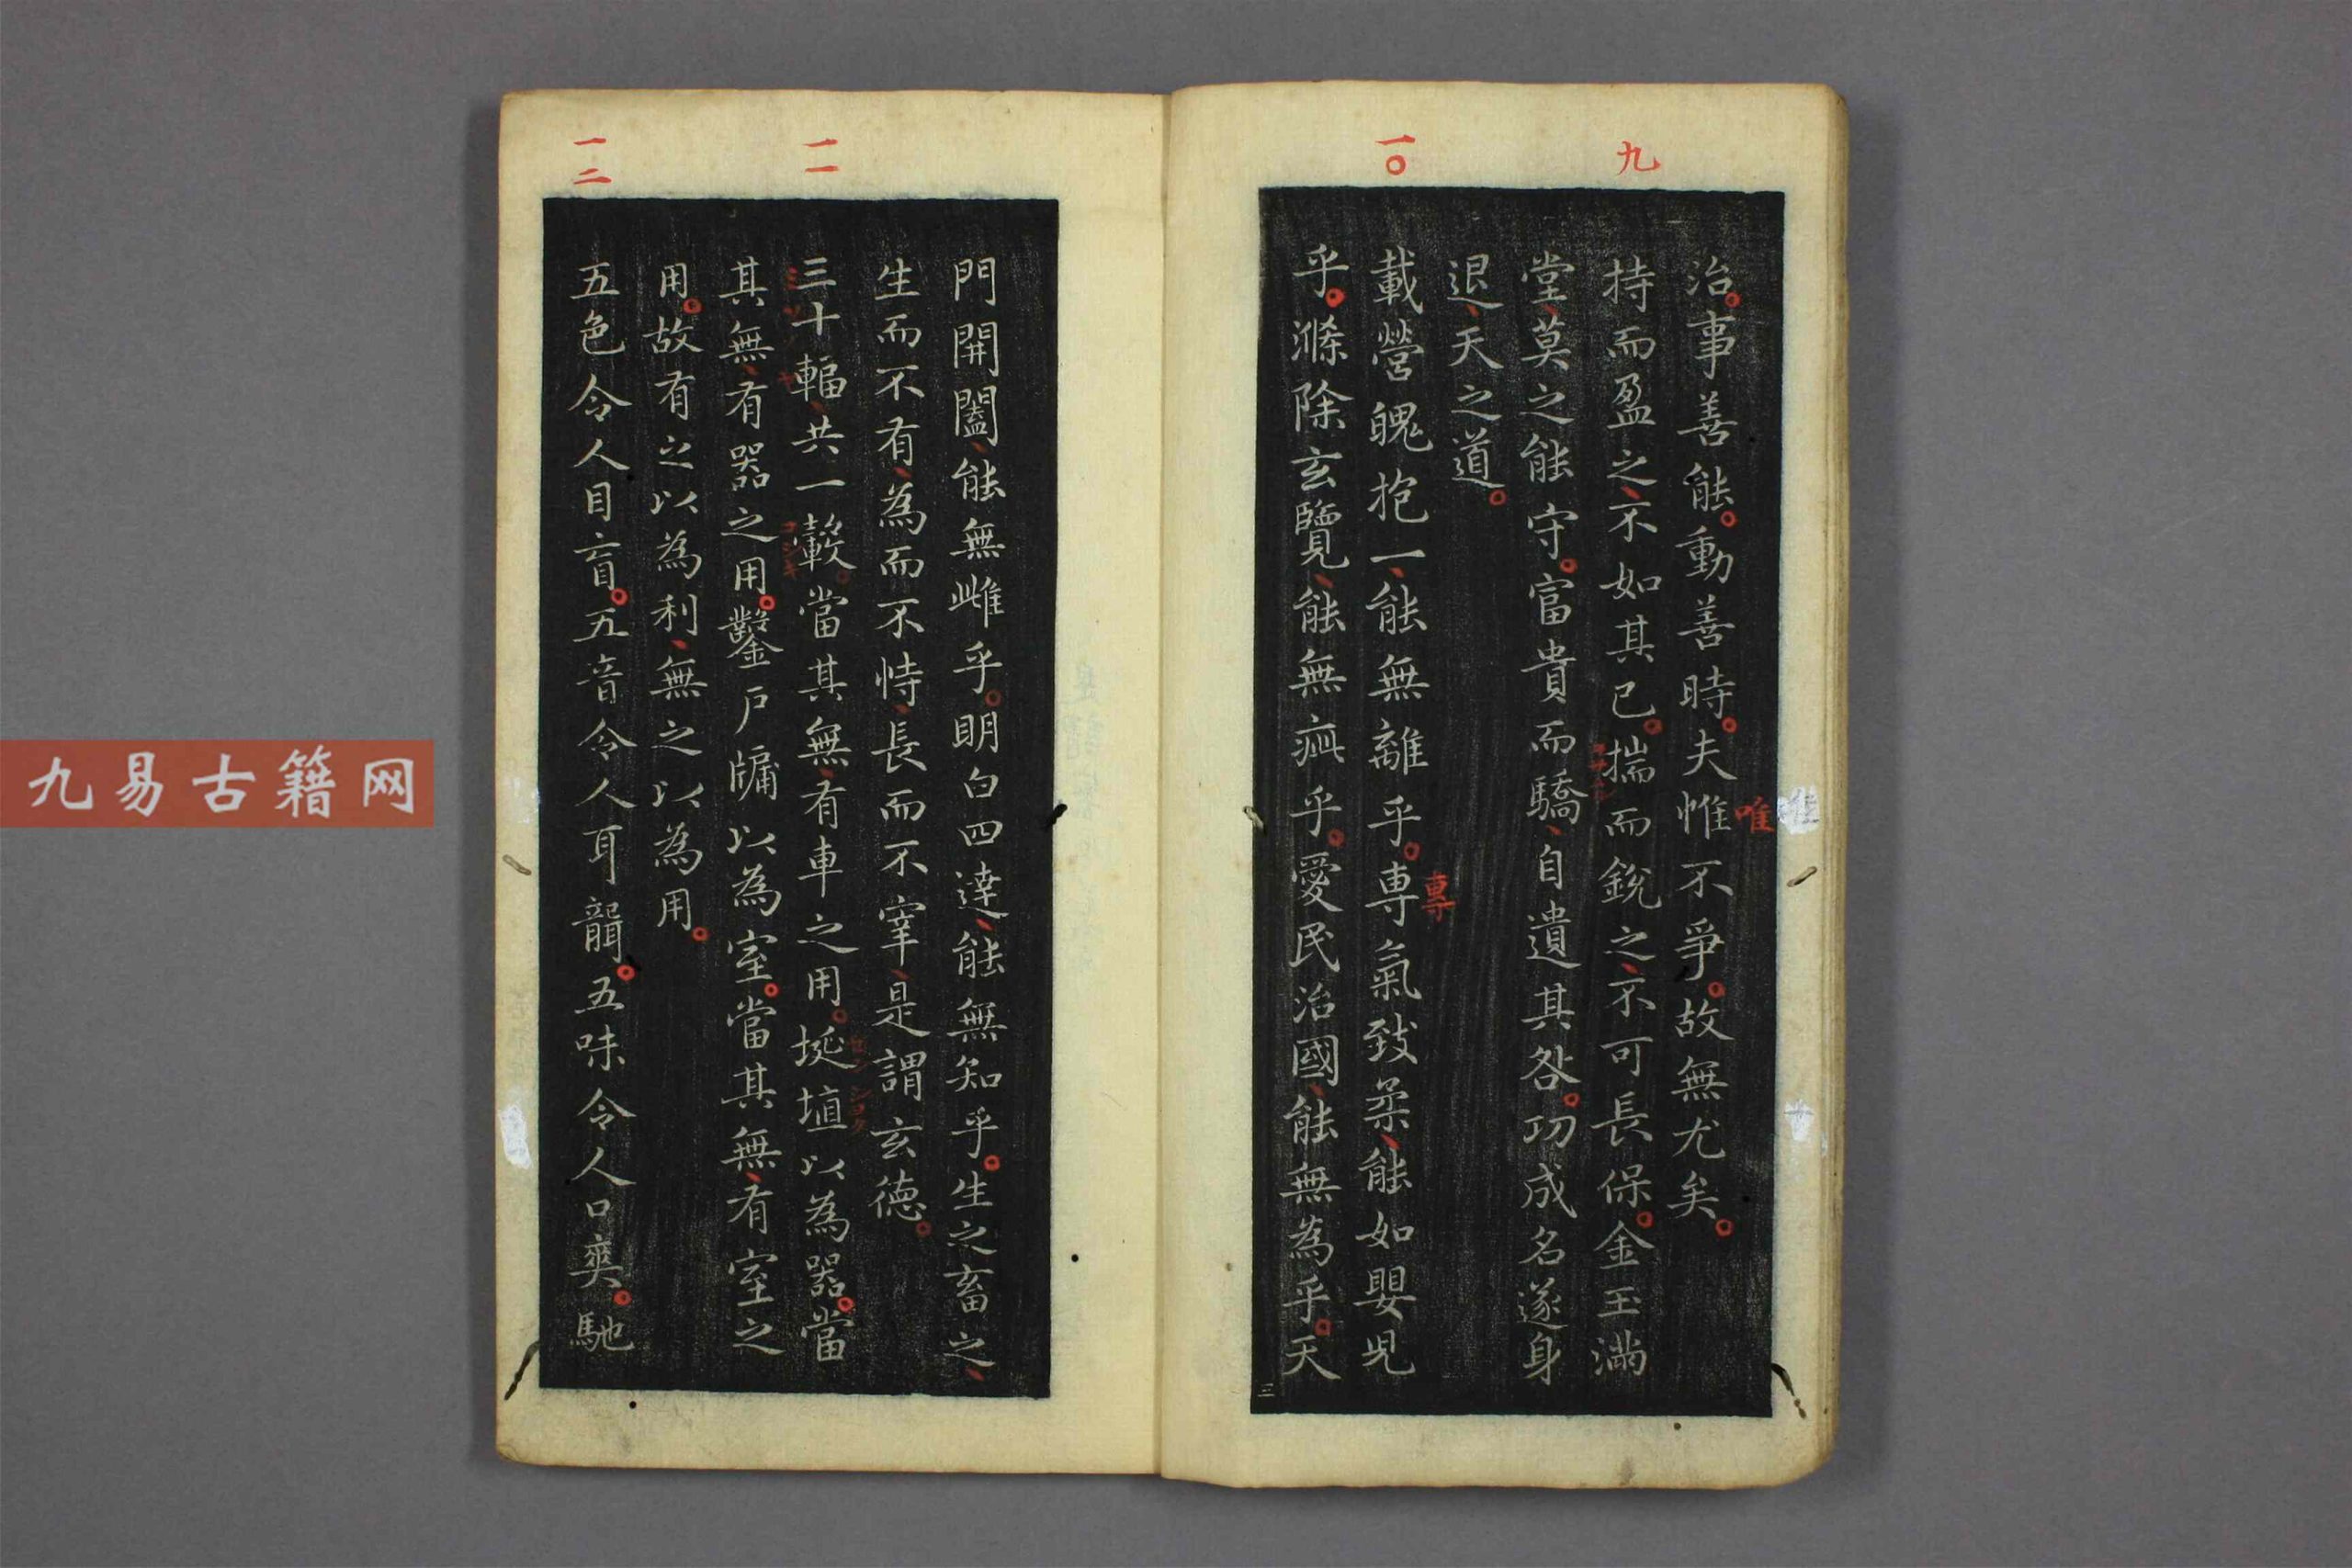 九
一〇
治。事善能。動善時。夫惟不爭。故無尤矣。
唯
持而盈之、不如其已。揣而銳之、不可長保。金玉滿
堂、莫之能守。富貴而驕、自遺其咎。功成名遂身
退、天之道。
載營魄抱一、能無離乎。專氣致柔、能如嬰兒
專
乎。滌除玄覽、能無疵乎。愛民治國、能無為乎。天
三
一一
一二
門開闔、能無雌乎。明白四達、能無知乎。生之畜之、
生而不有、為而不恃、長而不宰、是謂玄德。
三十輻、共一轂。當其無、有車之用。埏埴以為器。當
コシキ
其無、有器之用。鑿戶牖以為室。當其無、有室之
用。故有之以為利、無之以為用。
五色令人目盲。五音令人耳聾。五味令人口爽。馳
九易古籍网